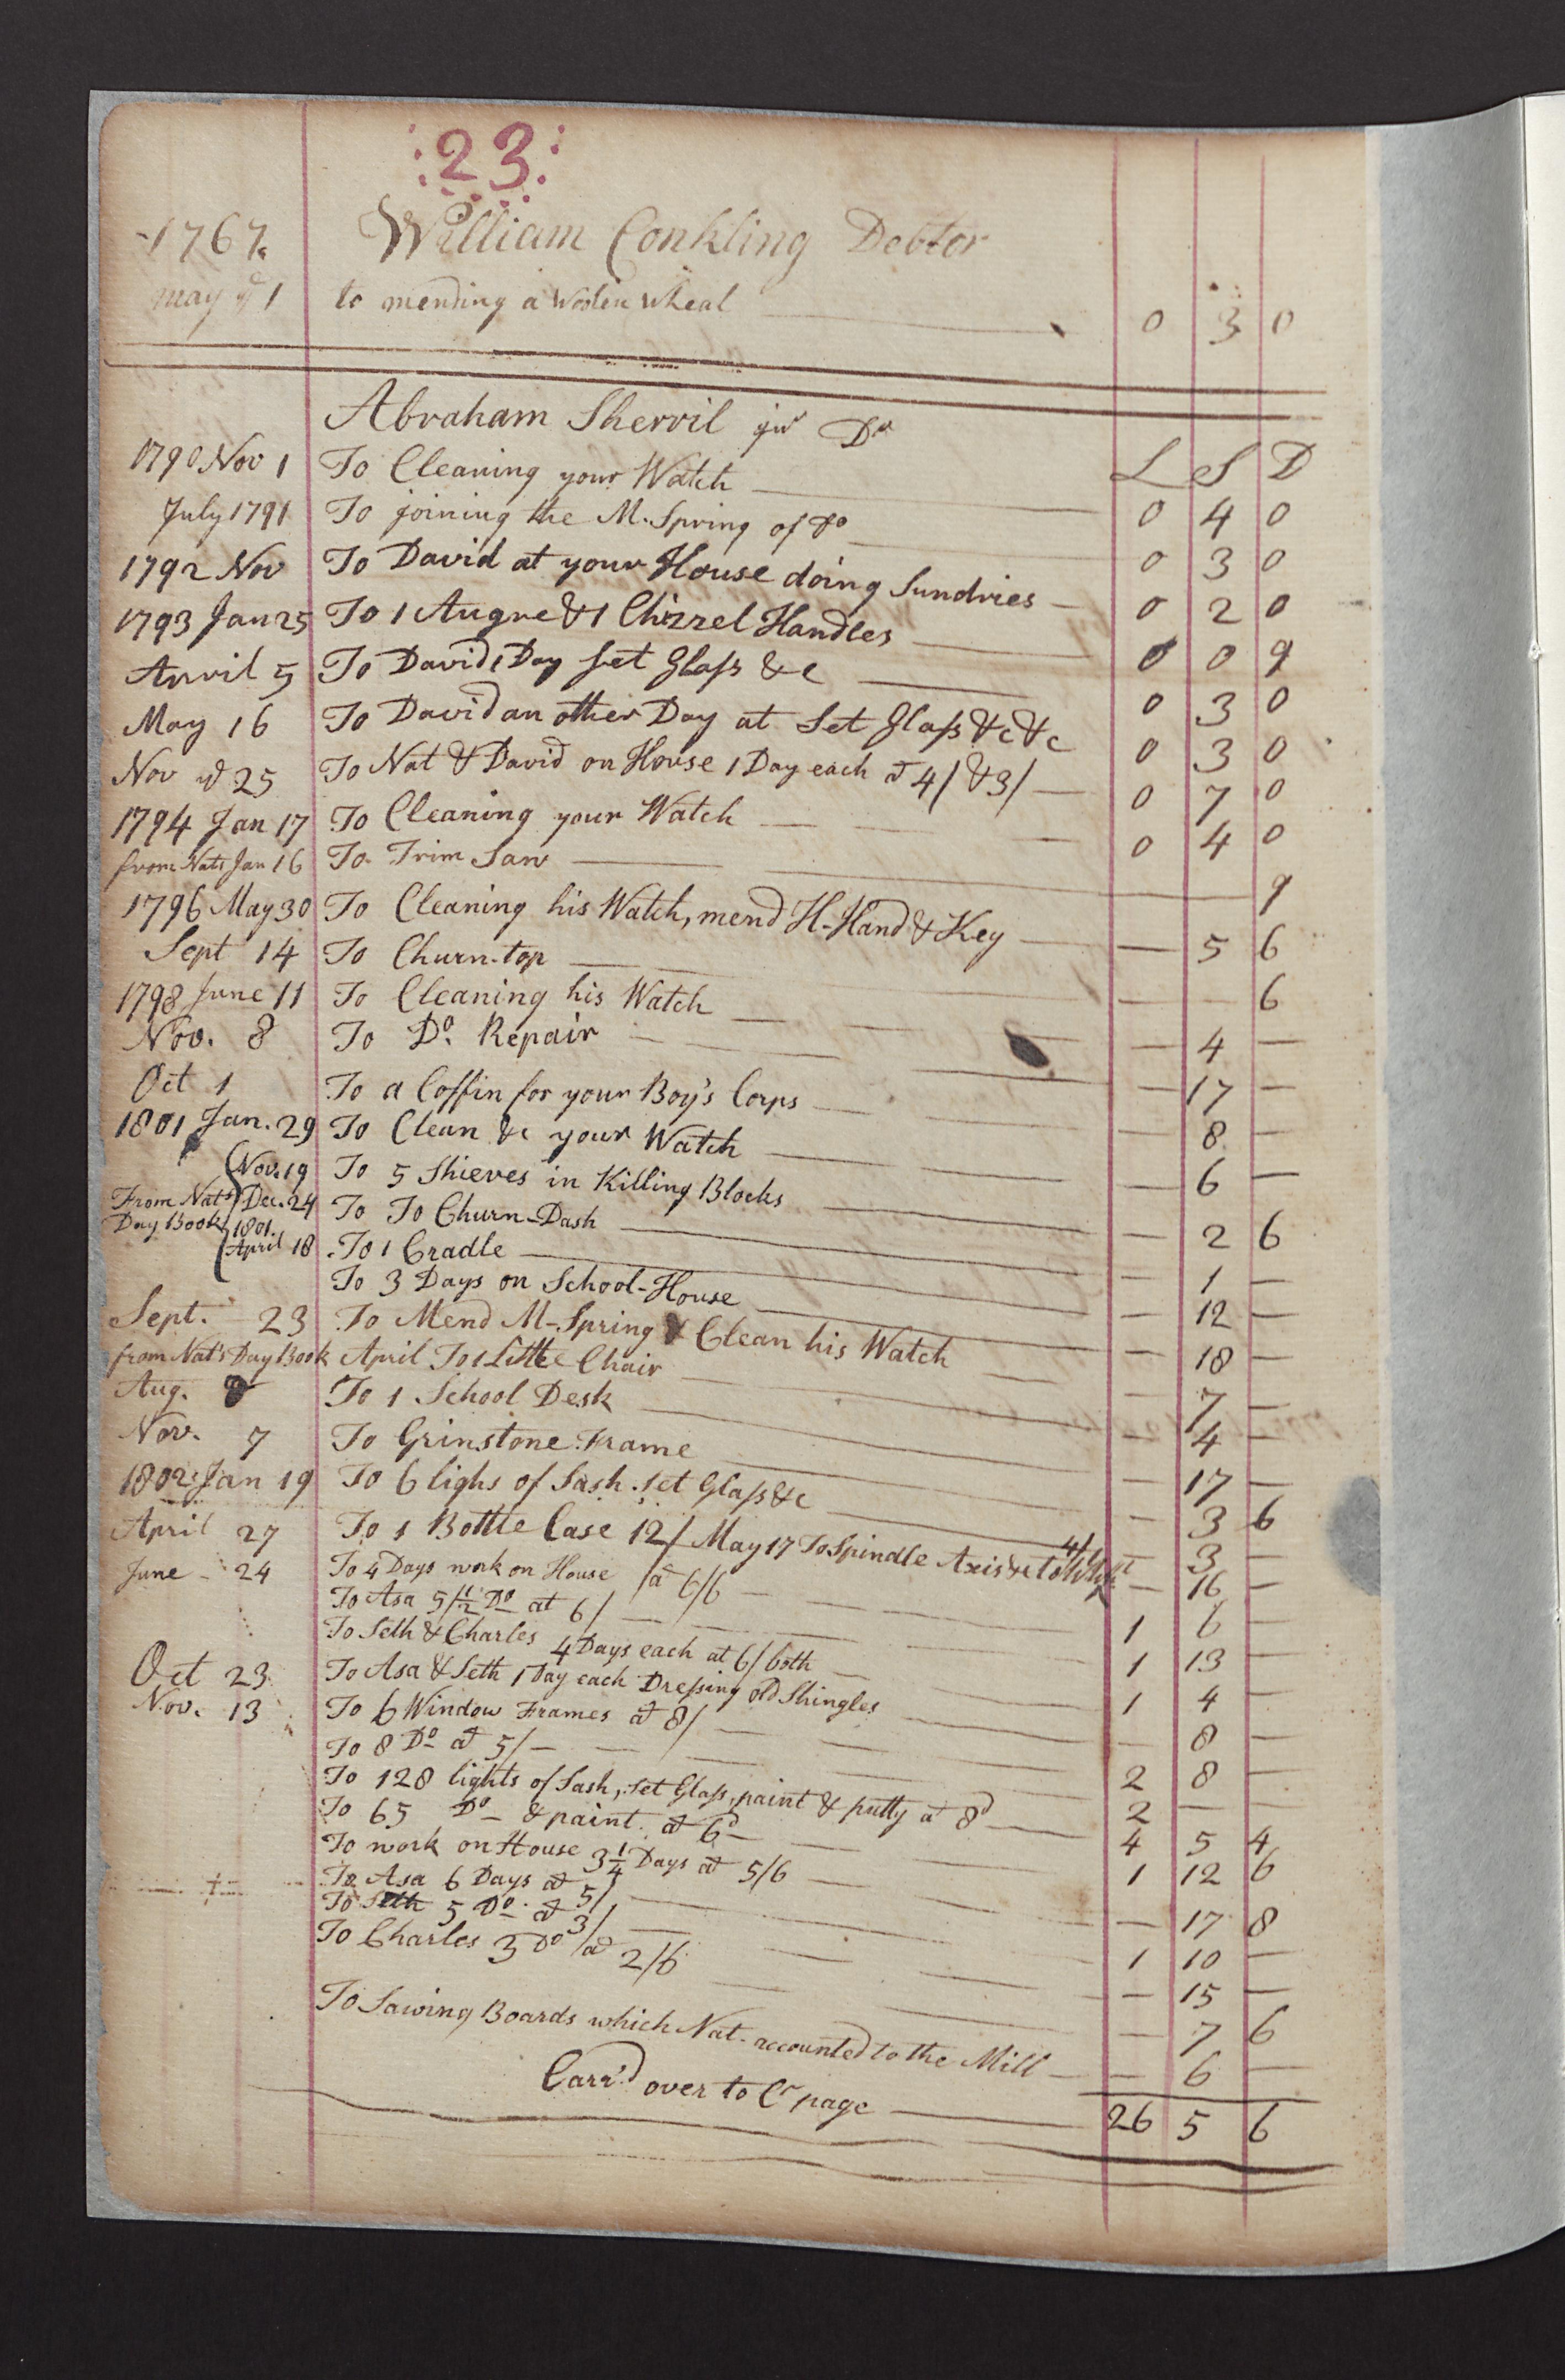 :23:
1767. William Conkling Debtor
may ye 1 to mending a Woolen wheal 0 3 0
Abraham Sherril jur Dr
L S D
1790 Nov 1 To Cleaning your Watch 0 4 0
July 1791 To joining the M. Spring of Do 0 3 0
1792 Nov To David at your House doing Sundries 0 2 0
1793 Jan 25 To 1 Augre & 1 Chizzel Handles 0 0 9
April 5 To David 1 Day Set Glass &c 0 3 0
May 16 To David an other Day at Set Glass &c &c 0 3 0
Nov ye 25 To Nat & David on House 1 Day each at 4/ & 3/ 0 7 0
1794 Jan 17 To Cleaning your Watch 0 4 0
from Nats Jan 16 To Trim Saw — 9
1796 May 30 To Cleaning his Watch, mend H-Hand & Key — 5 6
Sept 14 To Churn-top — 6
1798 June 11 To Cleaning his Watch — 4 —
Nov. 8 To Do. Repair — 17 —
Oct 1 To a Coffin for your Boy's Corps — 8 —
1801 Jan. 29 To Clean &c your Watch — 6 —
Nov. 19 To 5 Shieves in Killing Blocks — 2 6
From Nats Day Book Dec. 24 To To Churn-Dash — 1 —
1801. April 18 To 1 Cradle — 12 —
To 3 Days on School-House — 18 —
Sept. 23 To Mend M-Spring & Clean his Watch — 7 —
from Nat's Day Book April To 1 Little Chair — 4 —
Aug. 8 To 1 School Desk — 17 —
Nov. 7 To Grinstone Frame — 3 6
1802 Jan 19 To 6 lighs of Sash. set Glass &c — 3 —
April 27 To 1 Bottle Case 12/ May 17 To Spindle Axis &c to 4/ — 16 —
June 24 To 4 Days work on House at 6/6 1 6 —
To Asa 5 1/2 Do at 6/ 1 13 —
To Seth & Charles 4 Days each at 6/ both 1 4 —
Oct 23 To Asa & Seth 1 Day each Dressing old Shingles — 8 —
Nov. 13 To 6 Window Frames at 8/ 2 8 —
To 8 Do at 5/ 2 — —
To 128 lights of Sash, set Glass, paint & putty at 8d 4 5 4
To 65 Do & paint. at 6d 1 12 6
To work on House 3 1/4 Days at 5/6 — 17 8
To Asa 6 Days at 5/ 1 10 —
To Seth 5 Do. at 3/ — 15 —
To Charles 3 Do at 2/6 — 7 6
To Sawing Boards which Nat. accounted to the Mill — 6 —
Carr'd over to Cr page 26 5 6